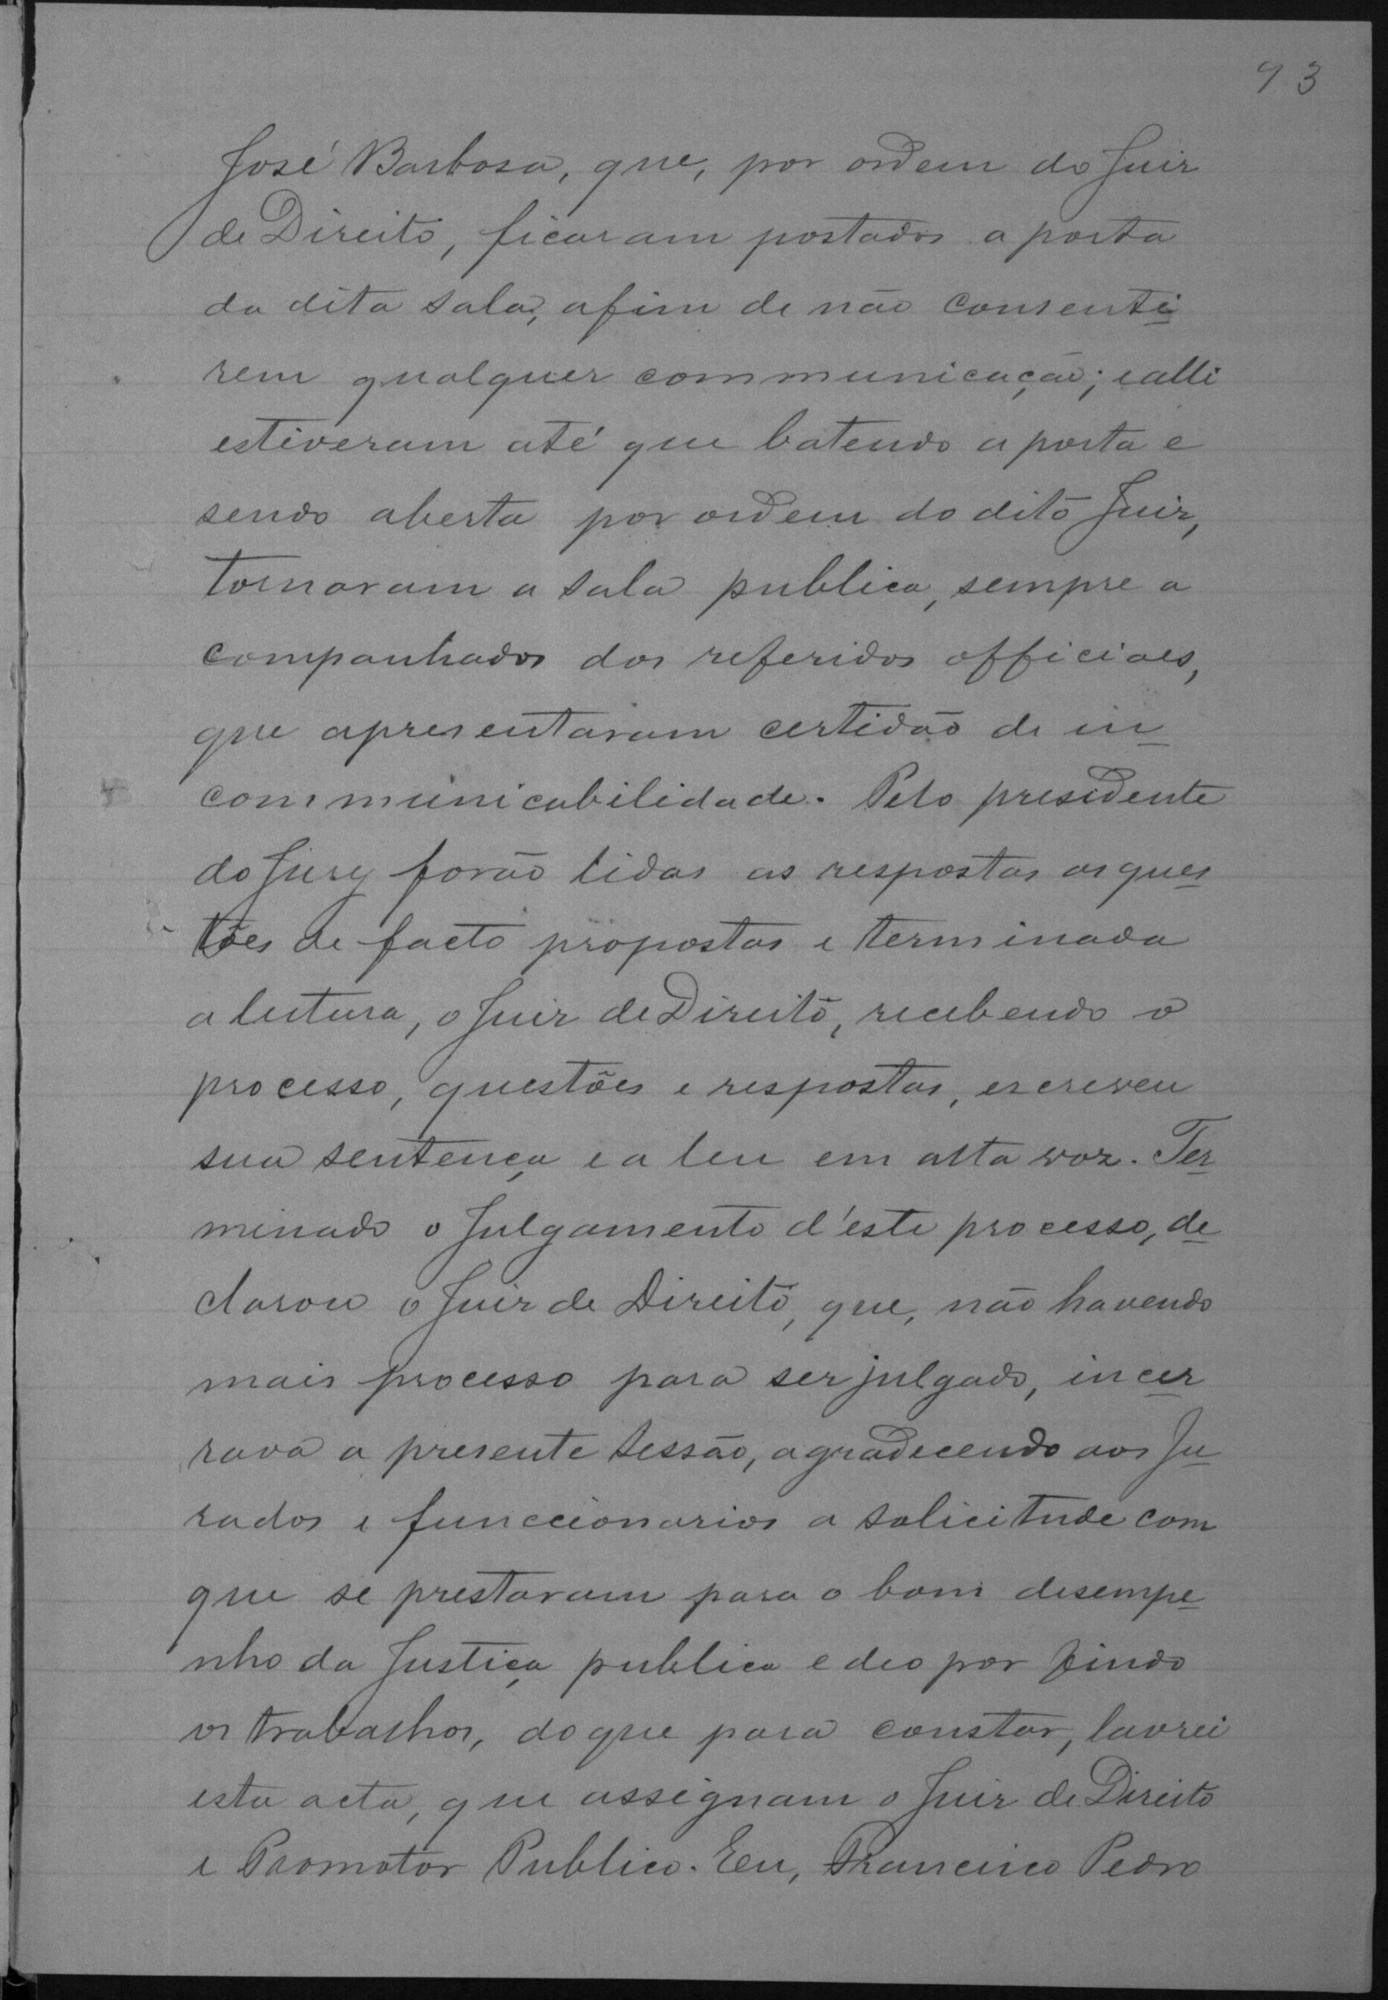 93
José Barbosa, que, por ordem do Juiz
de Direito, ficaram postados a porta
da dita sala, afim de não consenti
rem qualquer communicação; e alli
estiveram até que batendo a porta e
sendo aberta por ordem do dito Juiz,
tornaram a sala publica, sempre a
companhados dos referidos officiaes,
que apresentaram certidão de in
communicabilidade. Pelo presidente
do Jury forão lidas as respostas as ques
tões de facto propostas e terminada
a leitura, o Juiz de Direito, recebendo o
processo, questões e respostas, escreveu
sua sentença e a leu em alta voz. Ter
minado o julgamento d'este processo, de
clarou o Juiz de Direito, que, não havendo
mais processo para ser julgado, incer
rava a presente sessão, agradecendo aos Ju
rados e funccionarios a solicitude com
que se prestaram para o bom desempe
nho da Justiça publica e deo por findo
os trabalhos, do que para constar, lavrei
esta acta, que assignam o Juiz de Direito
e Promotor Publico. Eeu, Francisco Pedro